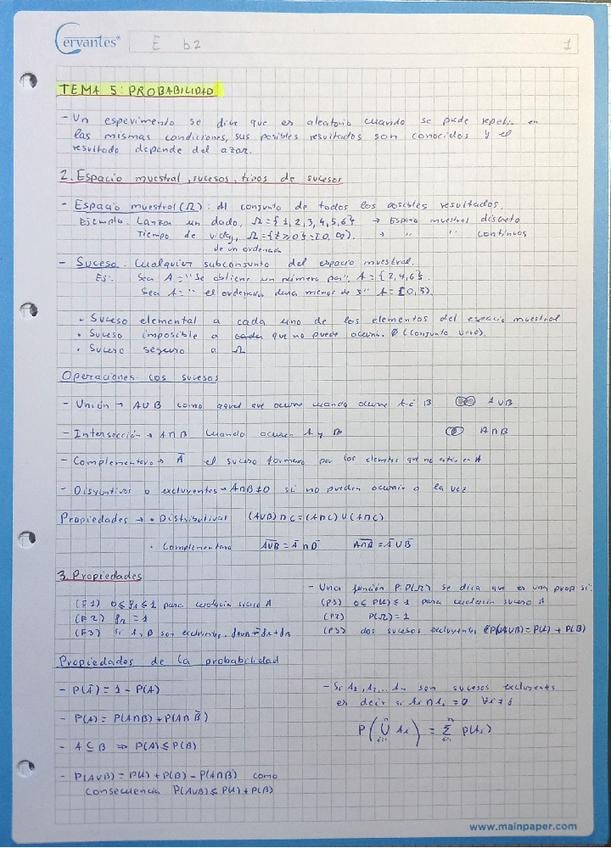 Cervantes
E b2
1
TEMA 5: PROBABILIDAD
- Un experimento se dice que es aleatorio cuando se puede repetir en
las mismas condiciones, sus posibles resultados son conocidos y el
resultado depende del azar.
2. Espacio muestral, sucesos, tipos de sucesos
- Espacio muestral (Ω): Al conjunto de todos los posibles resultados.
Ejemplo: Lanzar un dado, Ω={1,2,3,4,5,6} → Espacio muestral discreto
Tiempo de vida, Ω={t≥0}=[0,∞). → " " continuos
de un ordenador
- Suceso: Cualquier subconjunto del espacio muestral.
Ej: Sea A="Se obtiene un número par". A={2,4,6}
Sea A=" el ordenador dura menos de 3" A=[0,3).
• Suceso elemental a cada uno de los elementos del espacio muestral
• Suceso imposible a que no puede ocurrir. Ø (conjunto vacío).
• Suceso seguro a Ω
Operaciones con sucesos
- Unión → A∪B como aquel que ocurre cuando ocurre A o B A∪B
- Intersección → A∩B cuando ocurre A y B A∩B
- Complementario → Ā el suceso formado por los elementos que no están en A
- Disyuntivos o excluyentes → A∩B≠0 si no pueden ocurrir a la vez
Propiedades → • Distributiva (A∪B)∩C=(A∩C)∪(A∩C)
• Complementario A∪B = Ā∩B̄ A∩B = Ā∪B̄
3. Propiedades
(F1) 0≤fA≤1 para cualquier suceso A
(F2) fΩ = 1
(F3) Si A, B son excluyentes
- Una función P: P(Ω) se dice que es una prop si:
(P1) 0≤P(A)≤1 para cualquier suceso A
(P2) P(Ω)=1
(P3) dos sucesos excluyentes P(A∪B)=P(A)+P(B)
Propiedades de la probabilidad
- P(Ā) = 1 - P(A)
- P(A) = P(A∩B) + P(A∩B̄)
- A⊆B ⇒ P(A)≤P(B)
- P(A∪B) = P(A) + P(B) - P(A∩B) como
consecuencia P(A∪B)≤P(A)+P(B)
- Si A1, A2,... An son sucesos excluyentes
es decir si Ai∩Aj=0 ∀i≠j
P(⋃ Ai) = Σ P(Ai)
www.mainpaper.com